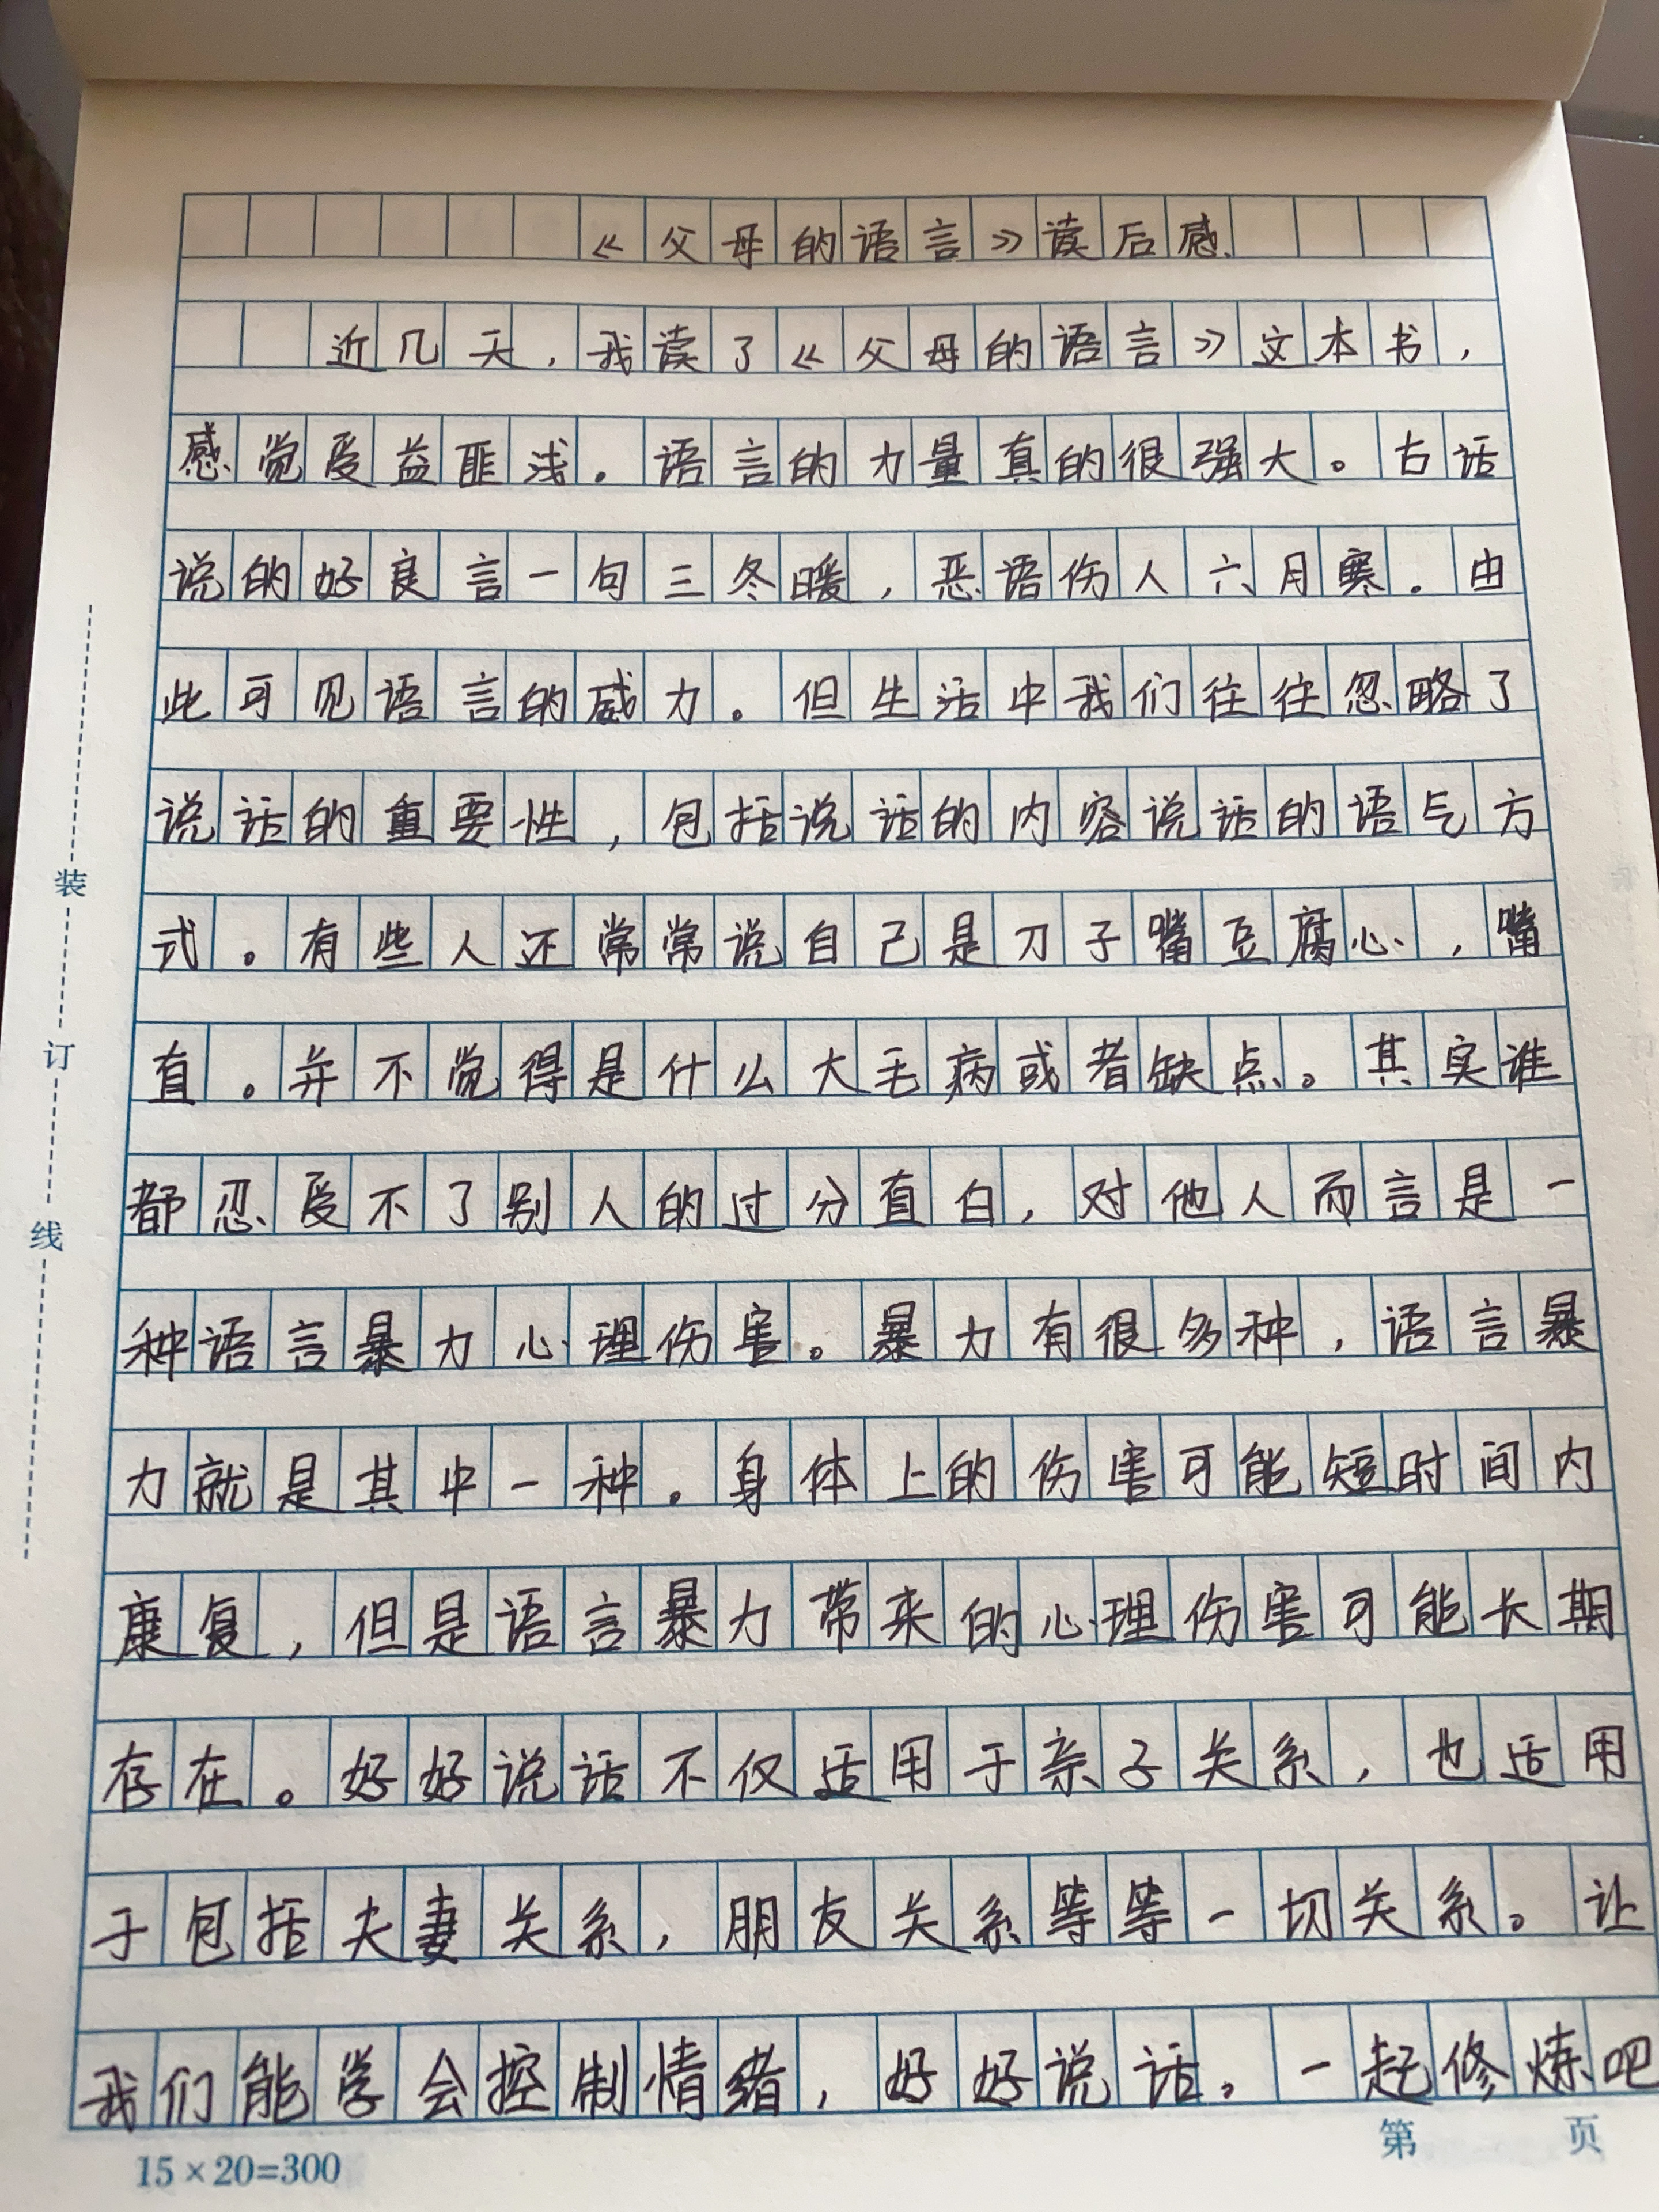 《父母的语言》读后感
近几天,我读了《父母的语言》这本书,
感觉受益匪浅。语言的力量真的很强大。古话
说的好良言一句三冬暖,恶语伤人六月寒。由
此可见语言的威力。但生活中我们往往忽略了
说话的重要性,包括说话的内容说话的语气方
式。有些人还常常说自己是刀子嘴豆腐心,嘴
直。并不觉得是什么大毛病或者缺点。其实谁
都忍受不了别人的过分直白,对他人而言是一
种语言暴力心理伤害。暴力有很多种,语言暴
力就是其中一种。身体上的伤害可能短时间内
康复,但是语言暴力带来的心理伤害可能长期
存在。好好说话不仅适用于亲子关系,也适用
于包括夫妻关系,朋友关系等等一切关系。让
我们能学会控制情绪,好好说话。一起修炼吧
装订线
15×20=300
第 页